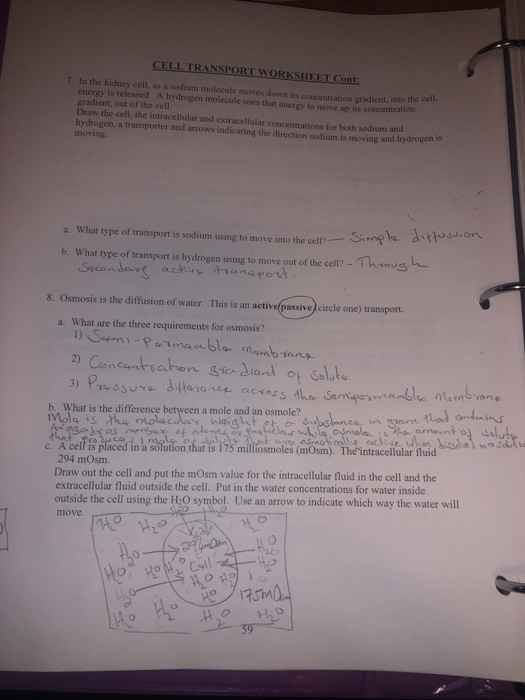 CELL TRANSPORT WORKSHEET Cont:
7. In the kidney cell, as a sodium molecule moves down its concentration gradient, into the cell,
energy is released. A hydrogen molecule uses that energy to move up its concentration
gradient, out of the cell.
Draw the cell, the intracellular and extracellular concentrations for both sodium and
hydrogen, a transporter and arrows indicating the direction sodium is moving and hydrogen is
moving.
a. What type of transport is sodium using to move into the cell? — Simple diffusion
b. What type of transport is hydrogen using to move out of the cell? - Through
Secondary active transport.
8. Osmosis is the diffusion of water. This is an active/passive (circle one) transport.
a. What are the three requirements for osmosis?
1) Semi-permeable membrane
2) Concentration gradient of solute.
3) Pressure difference across the semipermeable membrane
b. What is the difference between a mole and an osmole?
Mole is the molecular weight of a substance in gram that contains
number of atoms or particles while osmole is the amount of solute
that 1 mole of solute that are osmotically active when
c. A cell is placed in a solution that is 175 milliosmoles (mOsm). The intracellular fluid
294 mOsm.
Draw out the cell and put the mOsm value for the intracellular fluid in the cell and the
extracellular fluid outside the cell. Put in the water concentrations for water inside
outside the cell using the H2O symbol. Use an arrow to indicate which way the water will
move.
H2O H2O
H2O H2O H2O
H2O 294mOsm H2O
H2O H2O H2O Cell H2O
H2O H2O
H2O H2O 175mOsm
H2O H2O H2O H2O
59